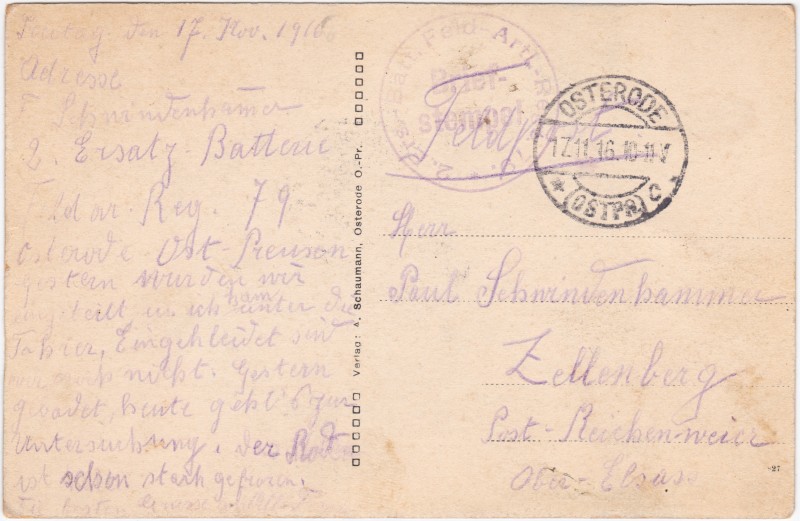 Freitag den 17. Nov. 1916
Adresse
F. Schwindenhammer
2. Ersatz-Batterie
Feldar. Reg. 79
Osterode Ost-Preusen
gestern wurden wir
eingeteilt u. ich kam unter die
Fahrer, Eingekleidet sind
wir noch nicht. Gestern
gebadet, heute geht's zur
Untersuchung. der Boden
ist schon stark gefroren.
Die besten Grüsse
Verlag: A. Schaumann, Osterode O.-Pr.
Brief-
stempel
Feldpost
OSTERODE
17.11.16.10-11V
* (OSTPR.) c *
Herr
Paul Schwindenhammer
Zellenberg
Post-Reichenweier
Ober-Elsass
27